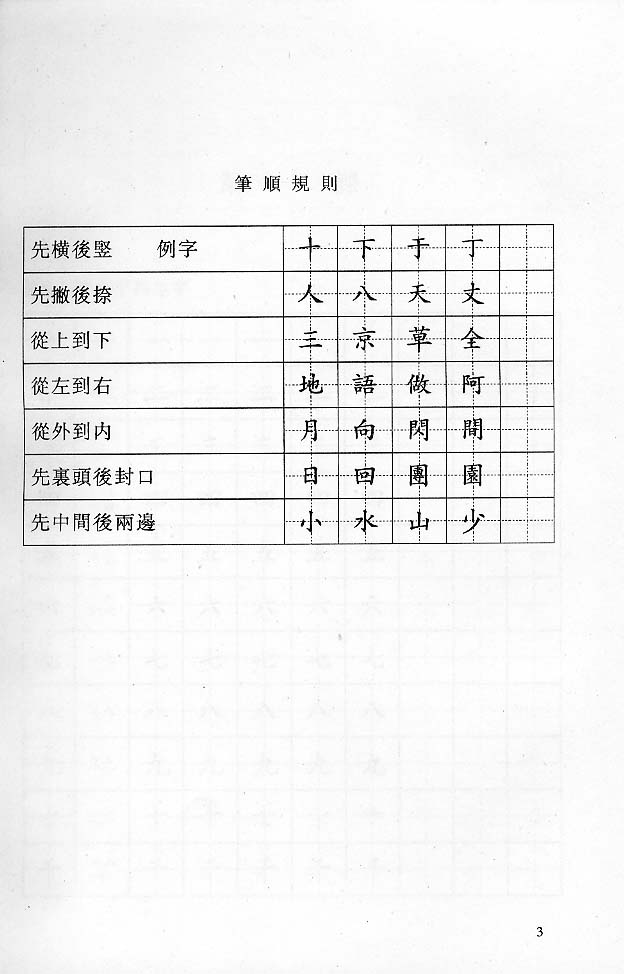 筆順規則
先橫後竪 例字 十 下 于 丁
先撇後捺 人 八 天 丈
從上到下 三 京 草 全
從左到右 地 語 做 阿
從外到内 月 向 閃 間
先裏頭後封口 日 回 團 園
先中間後兩邊 小 水 山 少
3